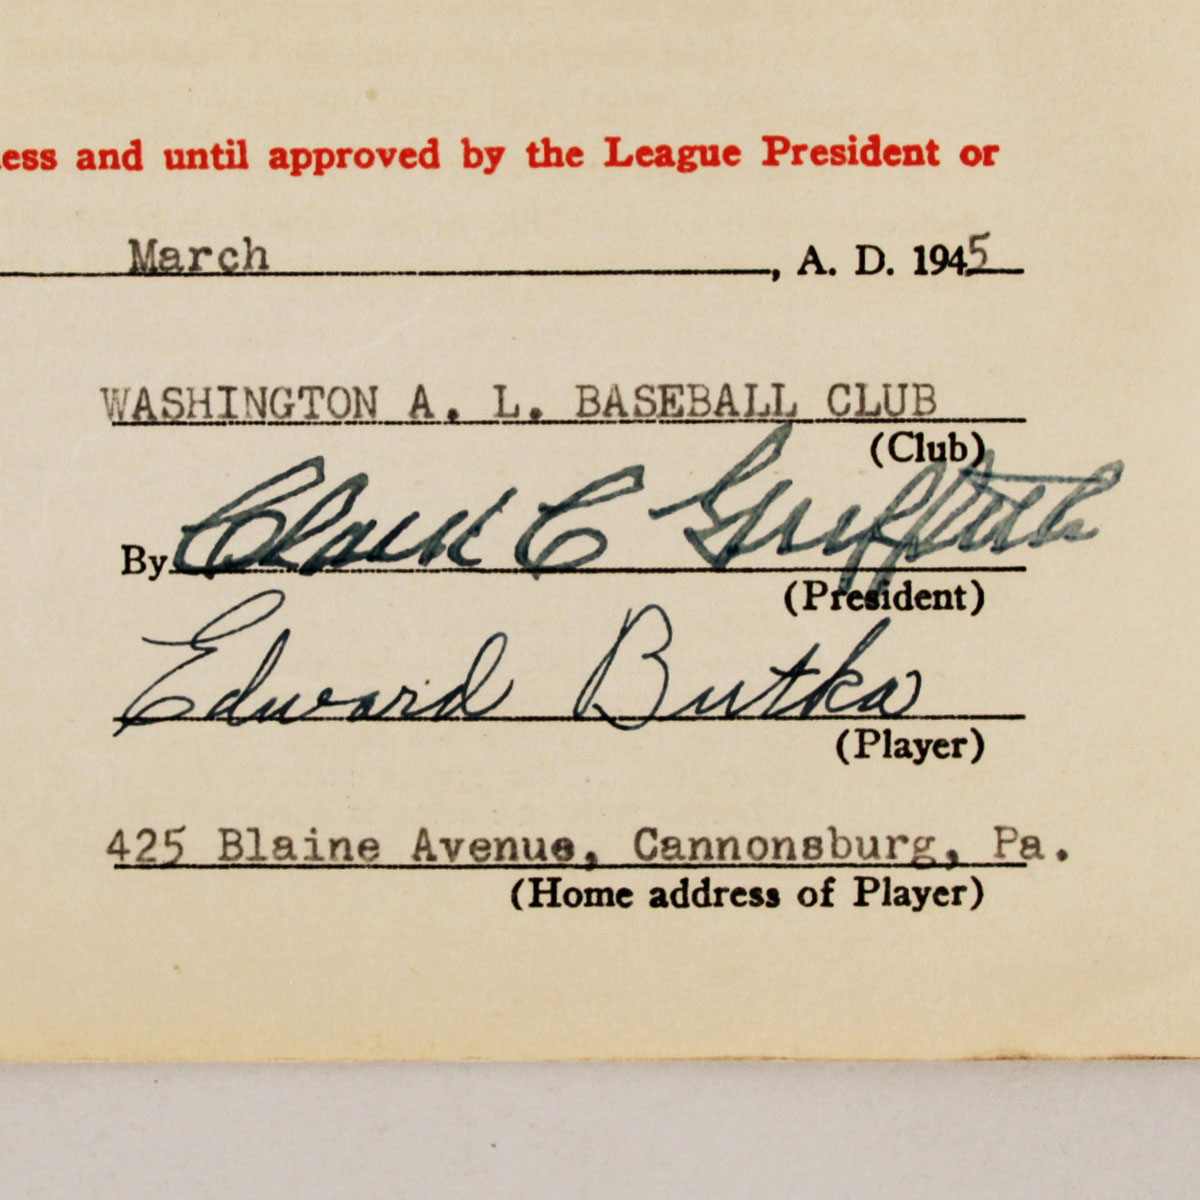 ess and until approved by the League President or
March, A. D. 1945
WASHINGTON A. L. BASEBALL CLUB
(Club)
By Clark C Griffith
(President)
Edward Butka
(Player)
425 Blaine Avenue, Cannonsburg, Pa.
(Home address of Player)